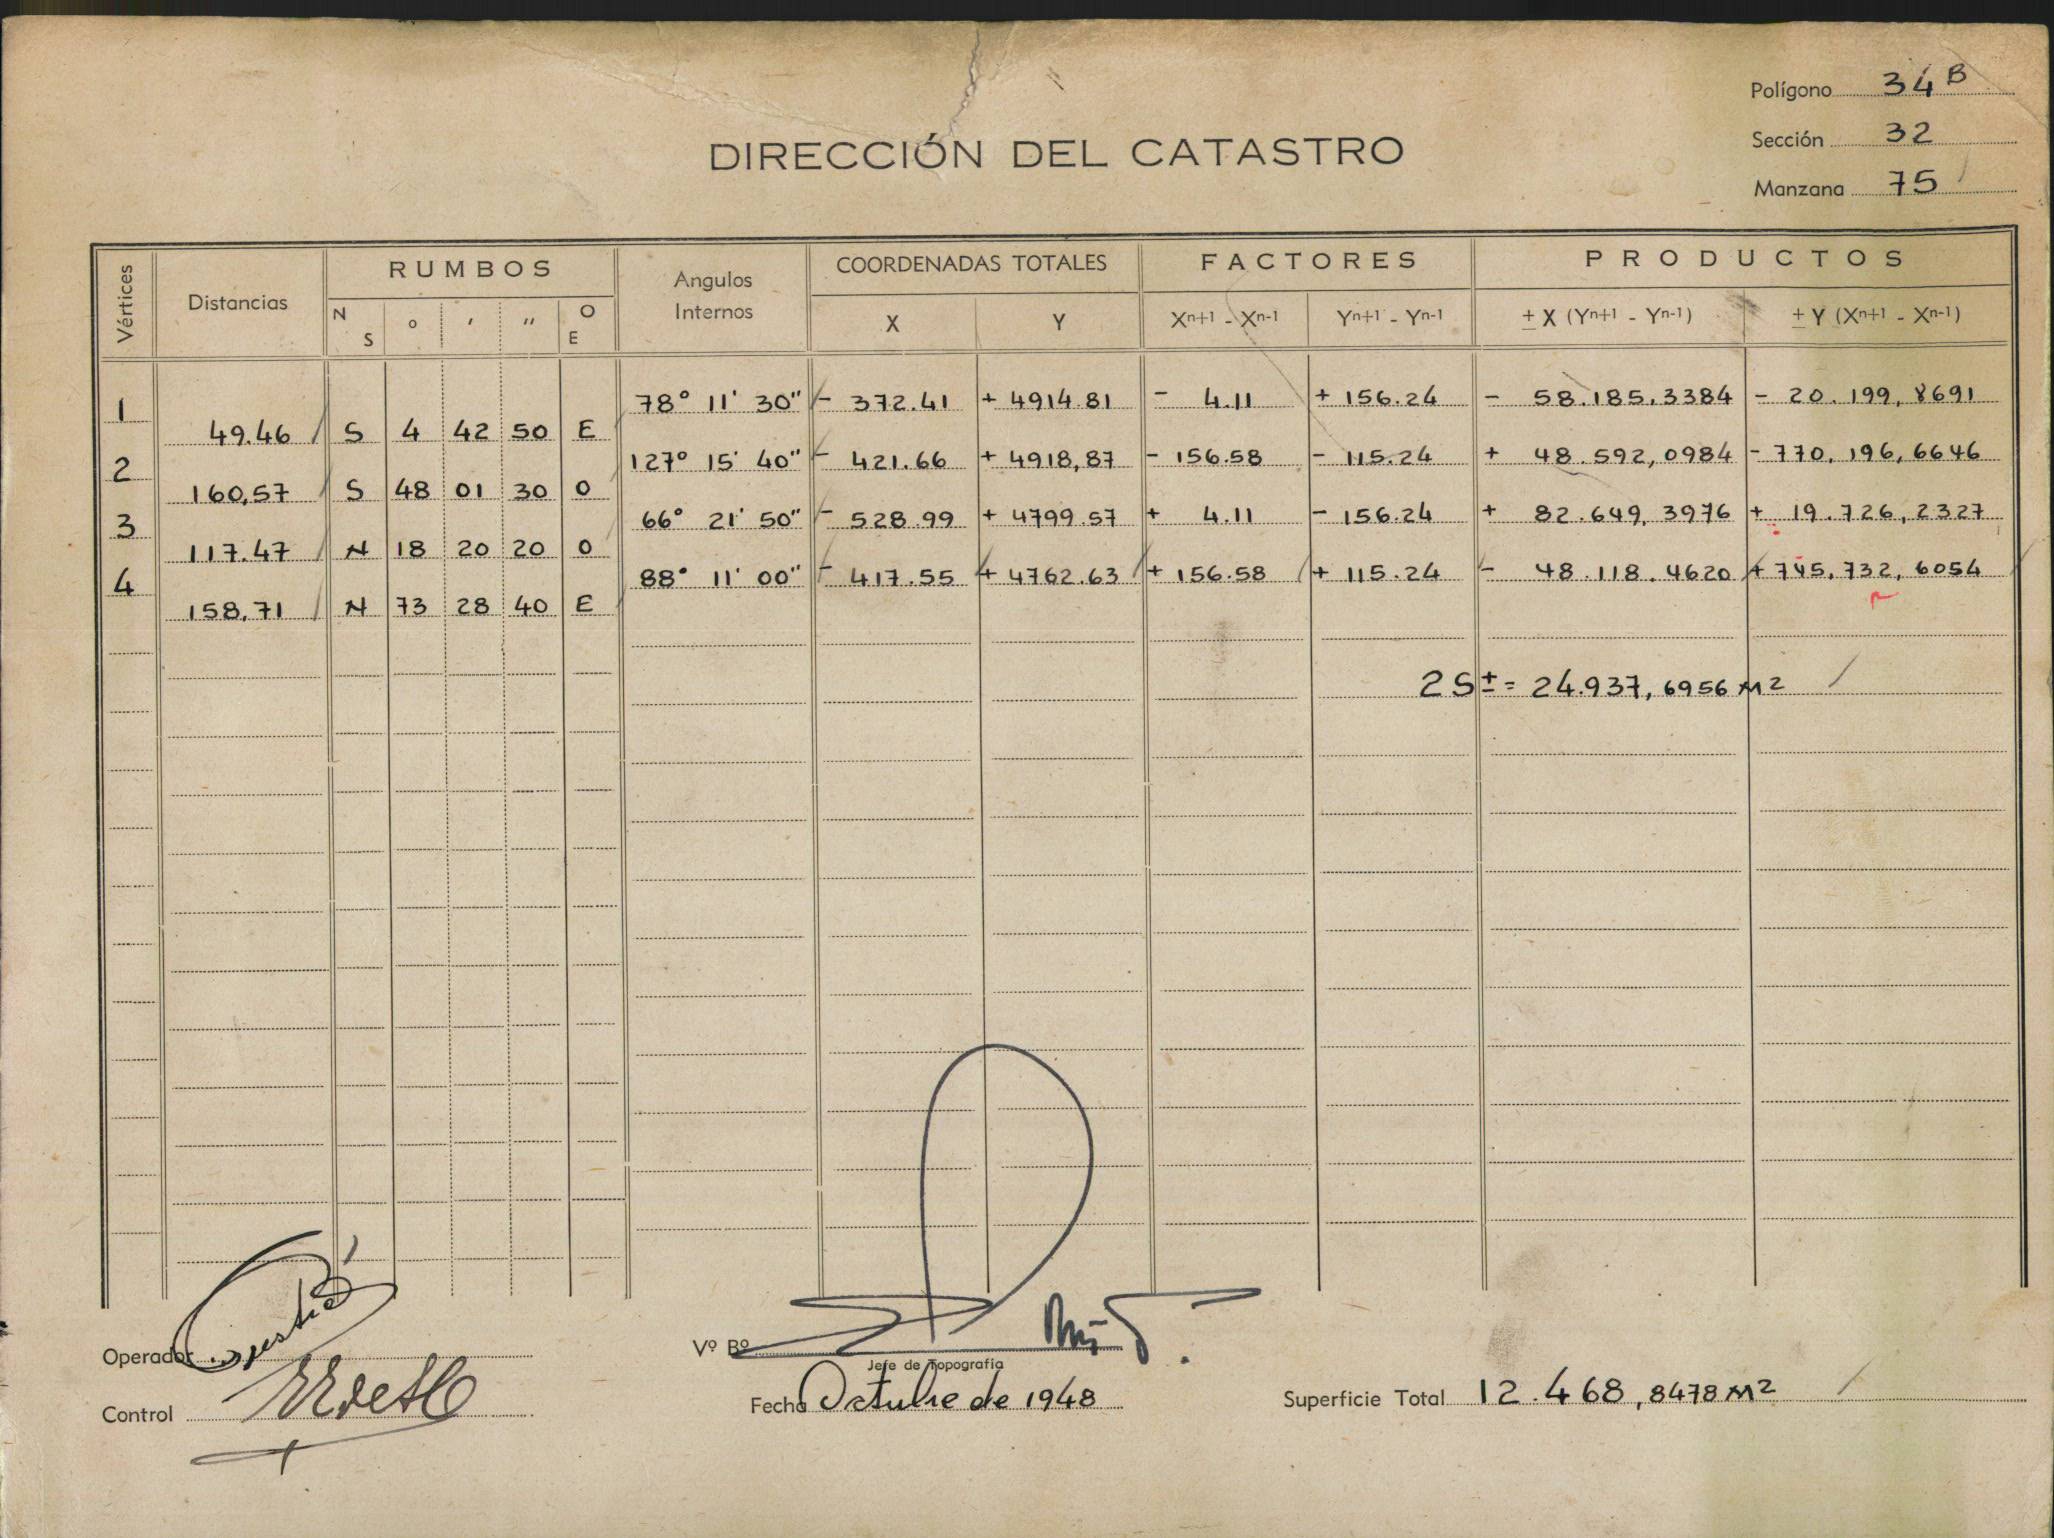 Polígono 34 B
DIRECCIÓN DEL CATASTRO
Sección 32
Manzana 75
Vértices Distancias RUMBOS Angulos Internos COORDENADAS TOTALES FACTORES PRODUCTOS
N S ° ′ ″ O E X Y Xn+1 - Xn-1 Yn+1 - Yn-1 ± X (Yn+1 - Yn-1) ± Y (Xn+1 - Xn-1)
1 78° 11' 30" - 372.41 + 4914.81 - 4.11 + 156.24 - 58.185,3384 - 20.199,8691
49.46 S 4 42 50 E
2 127° 15' 40" - 421.66 + 4918,87 - 156.58 - 115.24 + 48.592,0984 - 770.196,6646
160,57 S 48 01 30 O
3 66° 21' 50" - 528.99 + 4799.57 + 4.11 - 156.24 + 82.649,3976 + 19.726,2327
117.47 N 18 20 20 O
4 88° 11' 00" - 417.55 + 4762.63 + 156.58 + 115.24 - 48.118.4620 + 745.732,6054
158,71 N 73 28 40 E
2S ± = 24.937,6956 M2
Operador
Vº Bº
Jefe de Topografía
Control
Fecha Octubre de 1948
Superficie Total 12.468,8478 M2